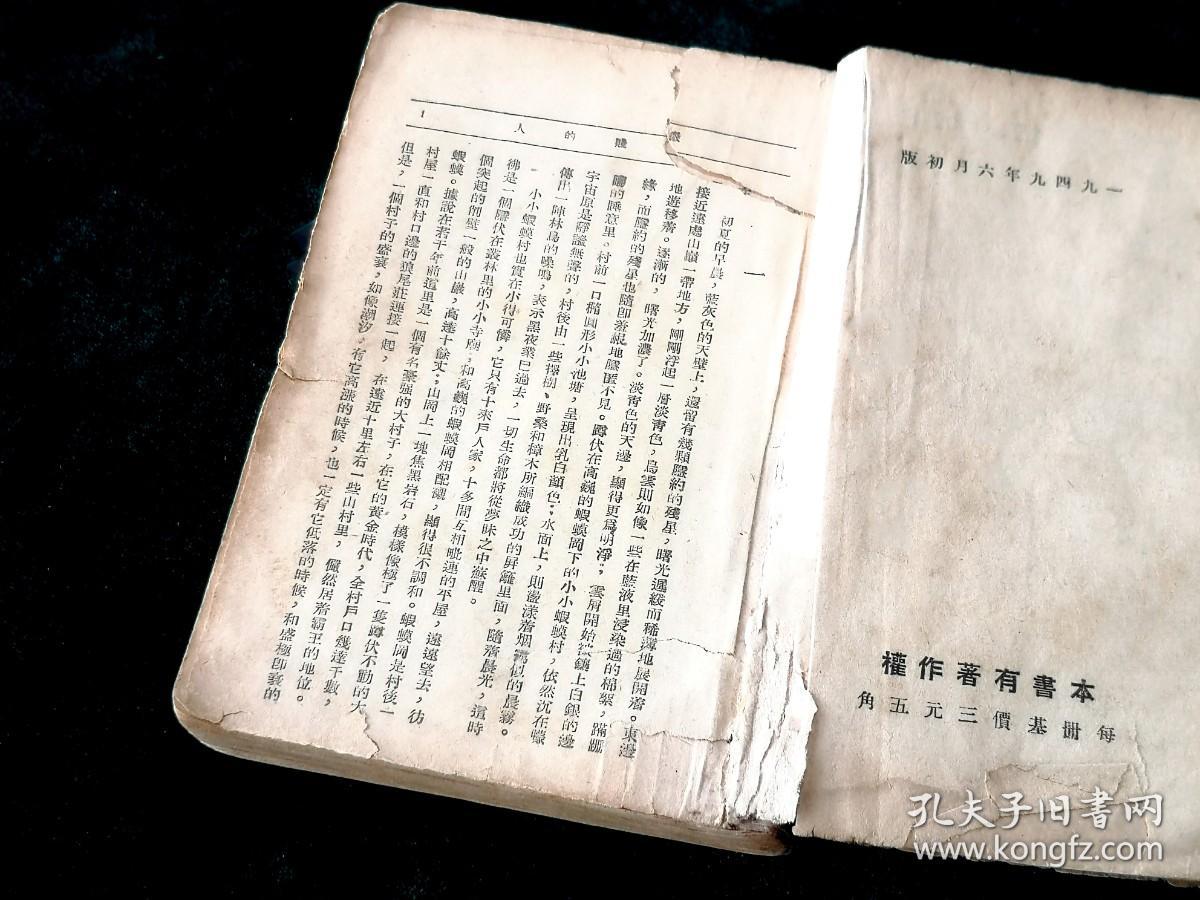 一九四九年六月初版
本書有著作權
每冊基價三元五角
賤的人
1
一
初夏的早晨，藍灰色的天壁上，還留有幾顆隱約的殘星，曙光遲緩而稀薄地展開着。東邊
接近遠處山巔一帶地方，剛剛浮起一層淡靑色，烏雲則如像一些在藍液里浸染過的棉絮，蹣跚
地遊移着。逐漸的，曙光加濃了。淡靑色的天邊，顯得更爲明淨；雲屑開始鑲上白銀的邊
緣，而隱約的殘星也隨即羞赧地隱匿不見。蹲伏在高巍的蝦蟆岡下的小小蝦蟆村，依然沉在矇
矓的睡意里。村前一口橢圓形小小池塘，呈現出乳白顏色；水面上，則蕩漾着烟靄似的晨霧。
宇宙原是靜謐無聲的，村後由一些撲樹、野桑和樟木所編織成功的屏籬里面，隨着晨光，這時
傳出一陣林鳥的噪鳴，表示黑夜業已過去，一切生命都將從夢昧之中蘇醒。
小小蝦蟆村也實在小得可憐，它只有十來戶人家，十多間互相毗連的平屋，遠遠望去，彷
彿是一個隱伏在叢林里的小小寺廟，和高巍的蝦蟆岡相配襯，顯得很不調和。蝦蟆岡是村後一
個突起的削壁一般的山巖，高達十餘丈；山岡上一塊焦黑岩石，模樣像極了一隻蹲伏不動的大
蝦蟆。據說在若干年前這里是一個有名豪强的大村子，在它的黃金時代，全村戶口幾達千數，
村屋一直和村口邊的狼尾莊連接一起，在遠近十里左右一些山村里，儼然居着霸王的地位。
但是，一個村子的盛衰，如像潮汐，有它高漲的時候，也一定有它低落的時候，和盛極卽衰的
孔夫子旧書网
www.kongfz.com